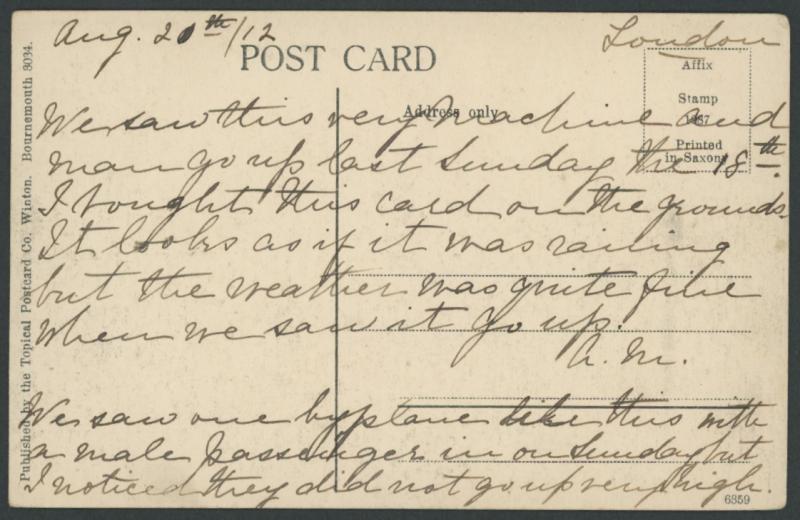 Aug. 20th/12
London
POST CARD
Affix
Stamp
Printed
in Saxony
Address only
We saw this very machine and
man go up last Sunday the 18th.
I bought this card on the grounds.
It looks as if it was raining
but the weather was quite fine
when we saw it go up.
A. M.
We saw one byplane like this with
a male passenger in on Sunday but
I noticed they did not go up very high.
Published by the Topical Postcard Co. Winton. Bournemouth 3034.
6859